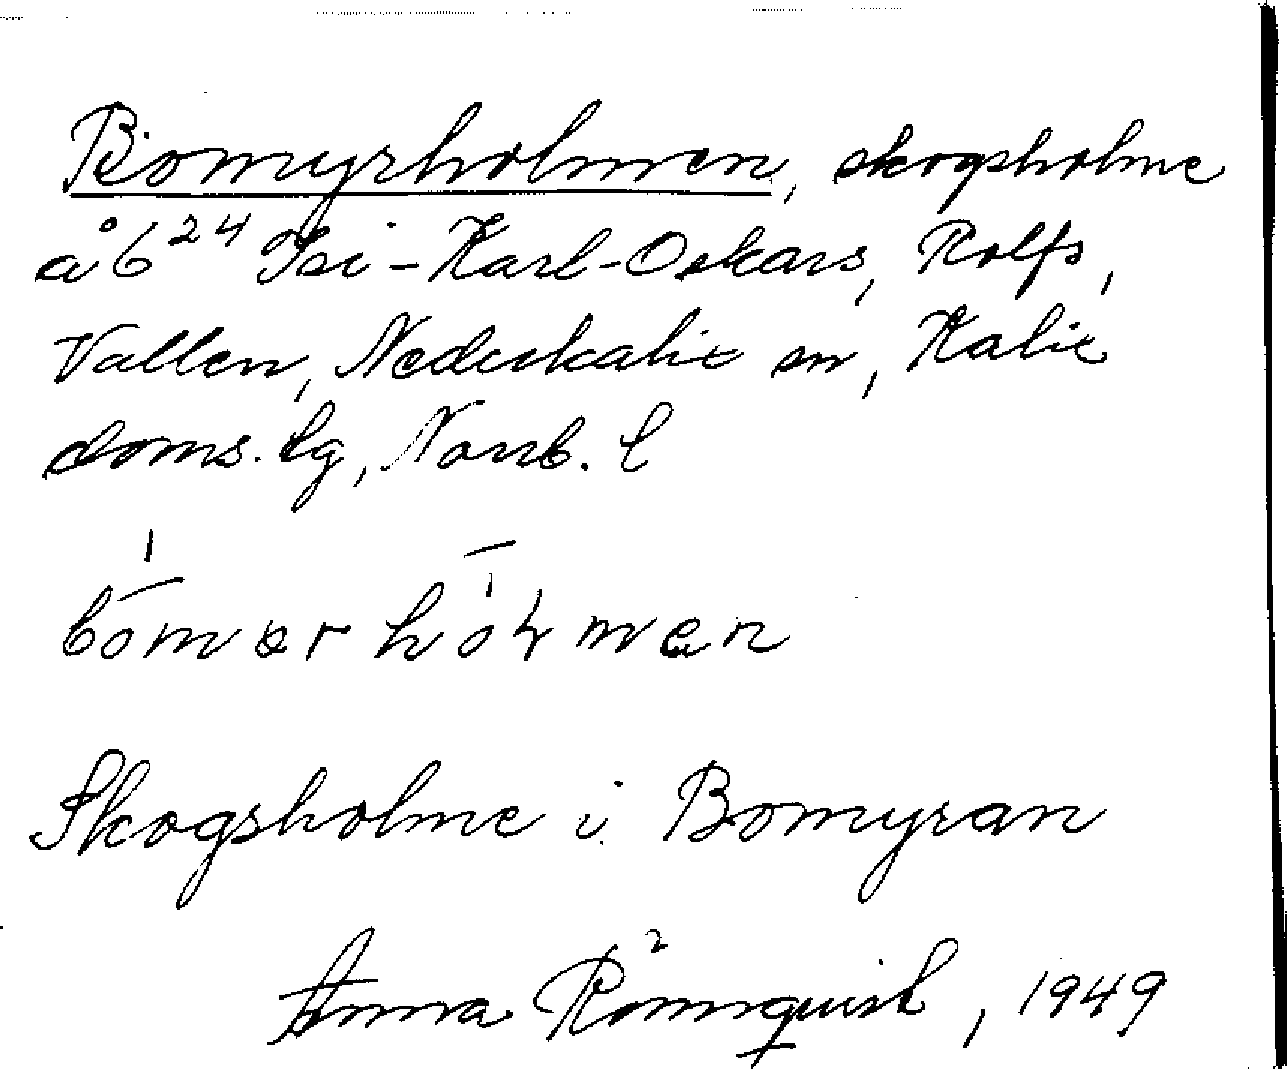 Bomyrholmen, skogsholme
å 6²⁴ Isi-Karl-Oskars, Rolfs,
Vallen, Nederkalix sn, Kalix
doms. lg, Norrb. l
Skogsholme i Bomyran
Anna Rönnquist, 1949